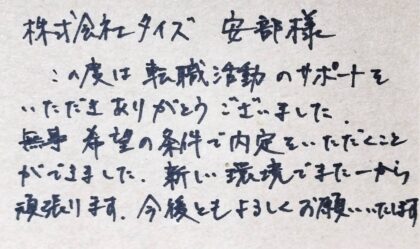 株式会社タイズ 安部様
この度は転職活動のサポートを
いただきありがとうございました.
無事 希望の条件で内定をいただくこと
ができました. 新しい環境でまた一から
頑張ります. 今後ともよろしくお願いいたします